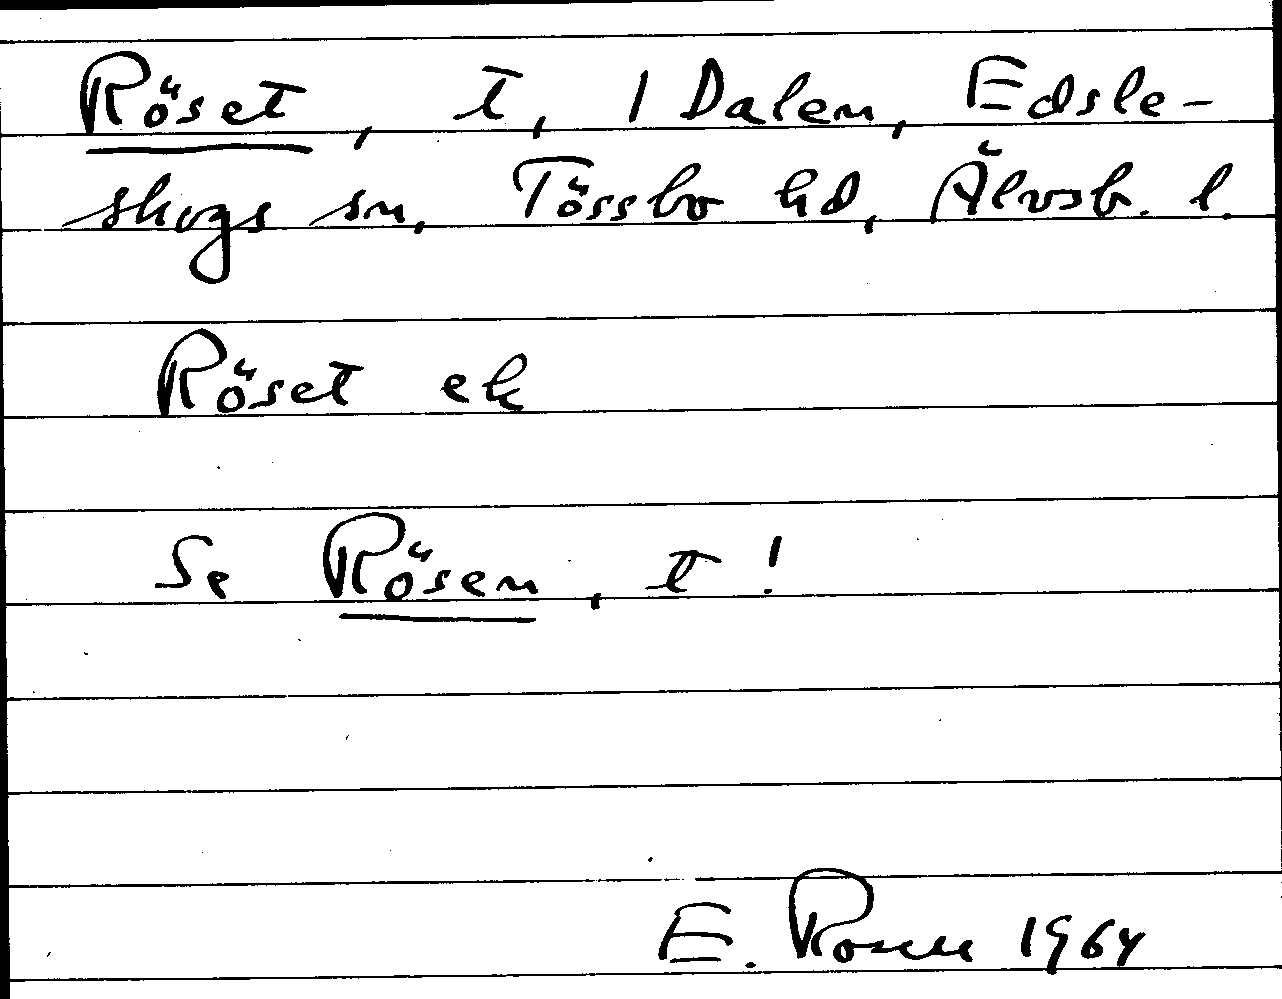 Röset, t, 1 Dalen, Edsle-
skogs sn, Tössbo hd, Älvsb. l.
Röset ek
Se Rösen, t!
E. Rosell 1964